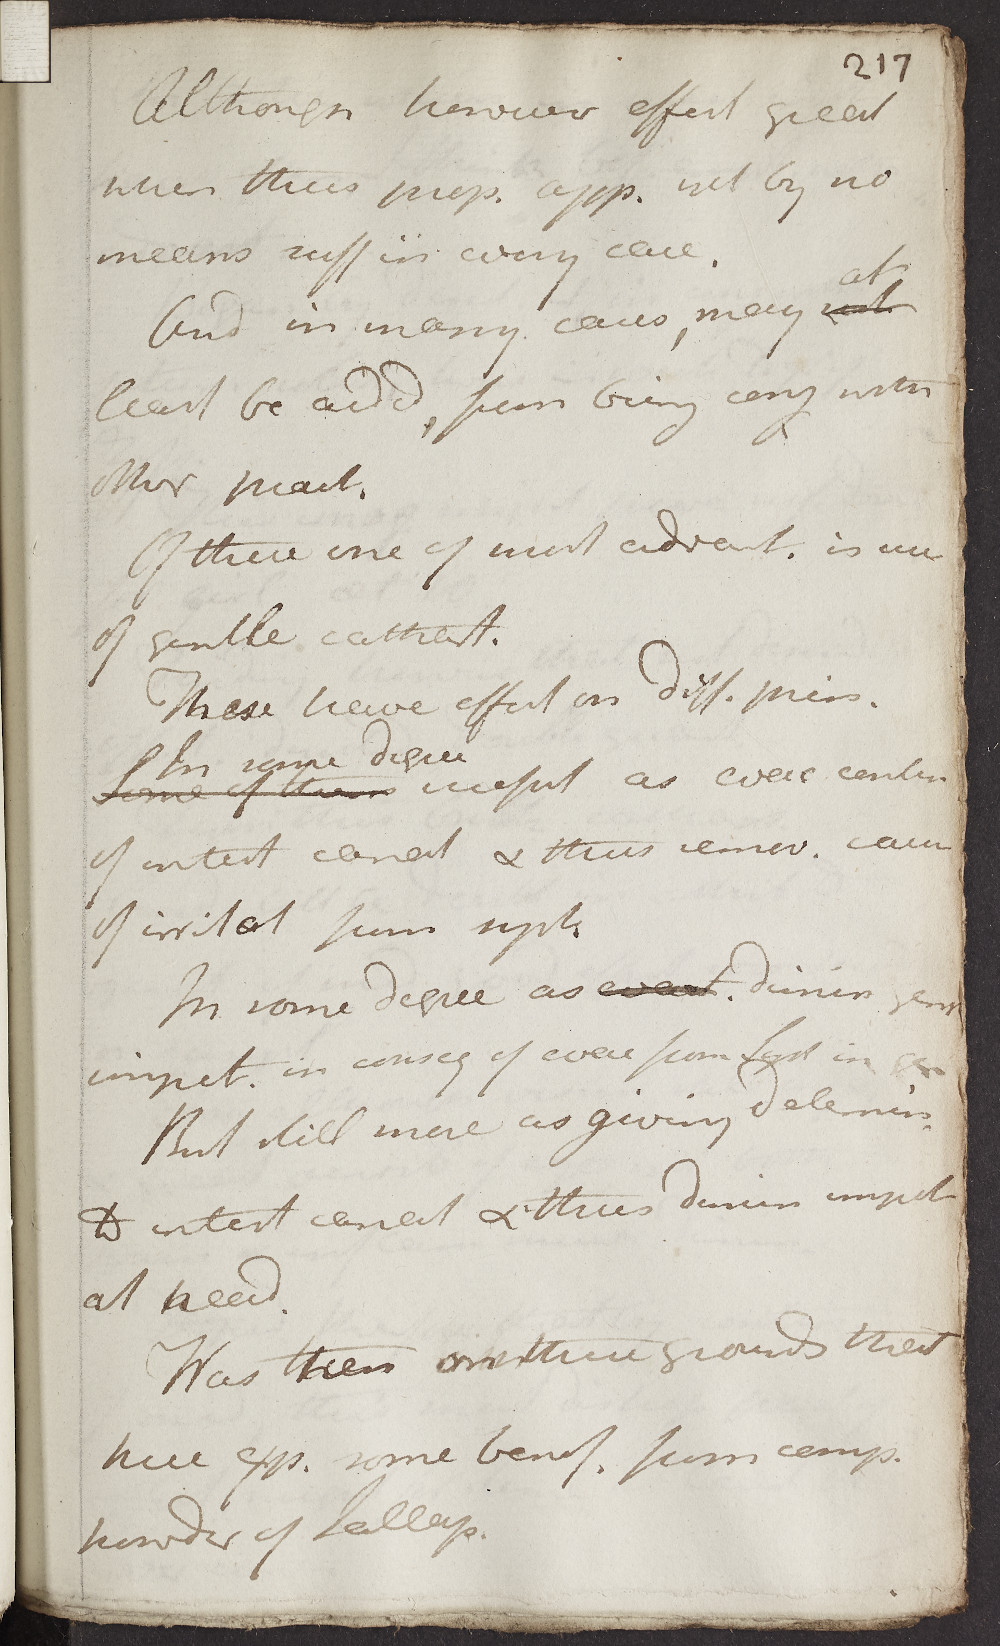 217
Although however effect great
when thus prop. app. yet by no
means suff in every case.
And in many cases, may at
least be aidd, from being conj with
other pract.
Of these one of most advant. is use
of gentle cathart.
These have effect on diff. prin.
In some degree
Some of them useful as evac conten
of intest canal & thus remov. caus
of irritat from syst.
In some degree as evacat. dimin gen
impet. in conseq of evac from syst in gen
But still more as giving determin.
to intest canal & thus dimin impet
at head.
Was then on these grounds that
here exp. some benef. from comp.
powder of Jallap.